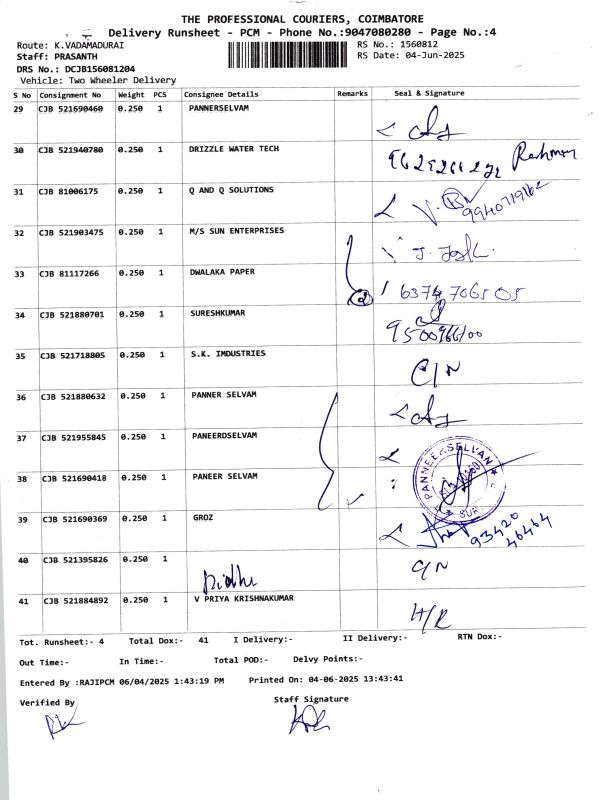 THE PROFESSIONAL COURIERS, COIMBATORE
Delivery Runsheet - PCM - Phone No.:9047080280 - Page No.:4
Route: K.VADAMADURAI RS No.: 1560812
Staff: PRASANTH RS Date: 04-Jun-2025
DRS No.: DCJB156081204
Vehicle: Two Wheeler Delivery
S No Consignment No Weight PCS Consignee Details Remarks Seal & Signature
29 CJB 521690460 0.250 1 PANNERSELVAM
30 CJB 521940780 0.250 1 DRIZZLE WATER TECH
Rahman
31 CJB 81006175 0.250 1 Q AND Q SOLUTIONS
9940719162
32 CJB 521903475 0.250 1 M/S SUN ENTERPRISES
33 CJB 81117266 0.250 1 DWALAKA PAPER
2 6374706505
34 CJB 521880701 0.250 1 SURESHKUMAR
9500966100
35 CJB 521718805 0.250 1 S.K. IMDUSTRIES
C/N
36 CJB 521880632 0.250 1 PANNER SELVAM
37 CJB 521955845 0.250 1 PANEERDSELVAM
PANNEERSELVAN
38 CJB 521690418 0.250 1 PANEER SELVAM
SUR
39 CJB 521690369 0.250 1 GROZ
93420
46464
40 CJB 521395826 0.250 1
C/N
41 CJB 521884892 0.250 1 V PRIYA KRISHNAKUMAR
H/R
Tot. Runsheet:- 4 Total Dox:- 41 I Delivery:- II Delivery:- RTN Dox:-
Out Time:- In Time:- Total POD:- Delvy Points:-
Entered By :RAJIPCM 06/04/2025 1:43:19 PM Printed On: 04-06-2025 13:43:41
Verified By Staff Signature